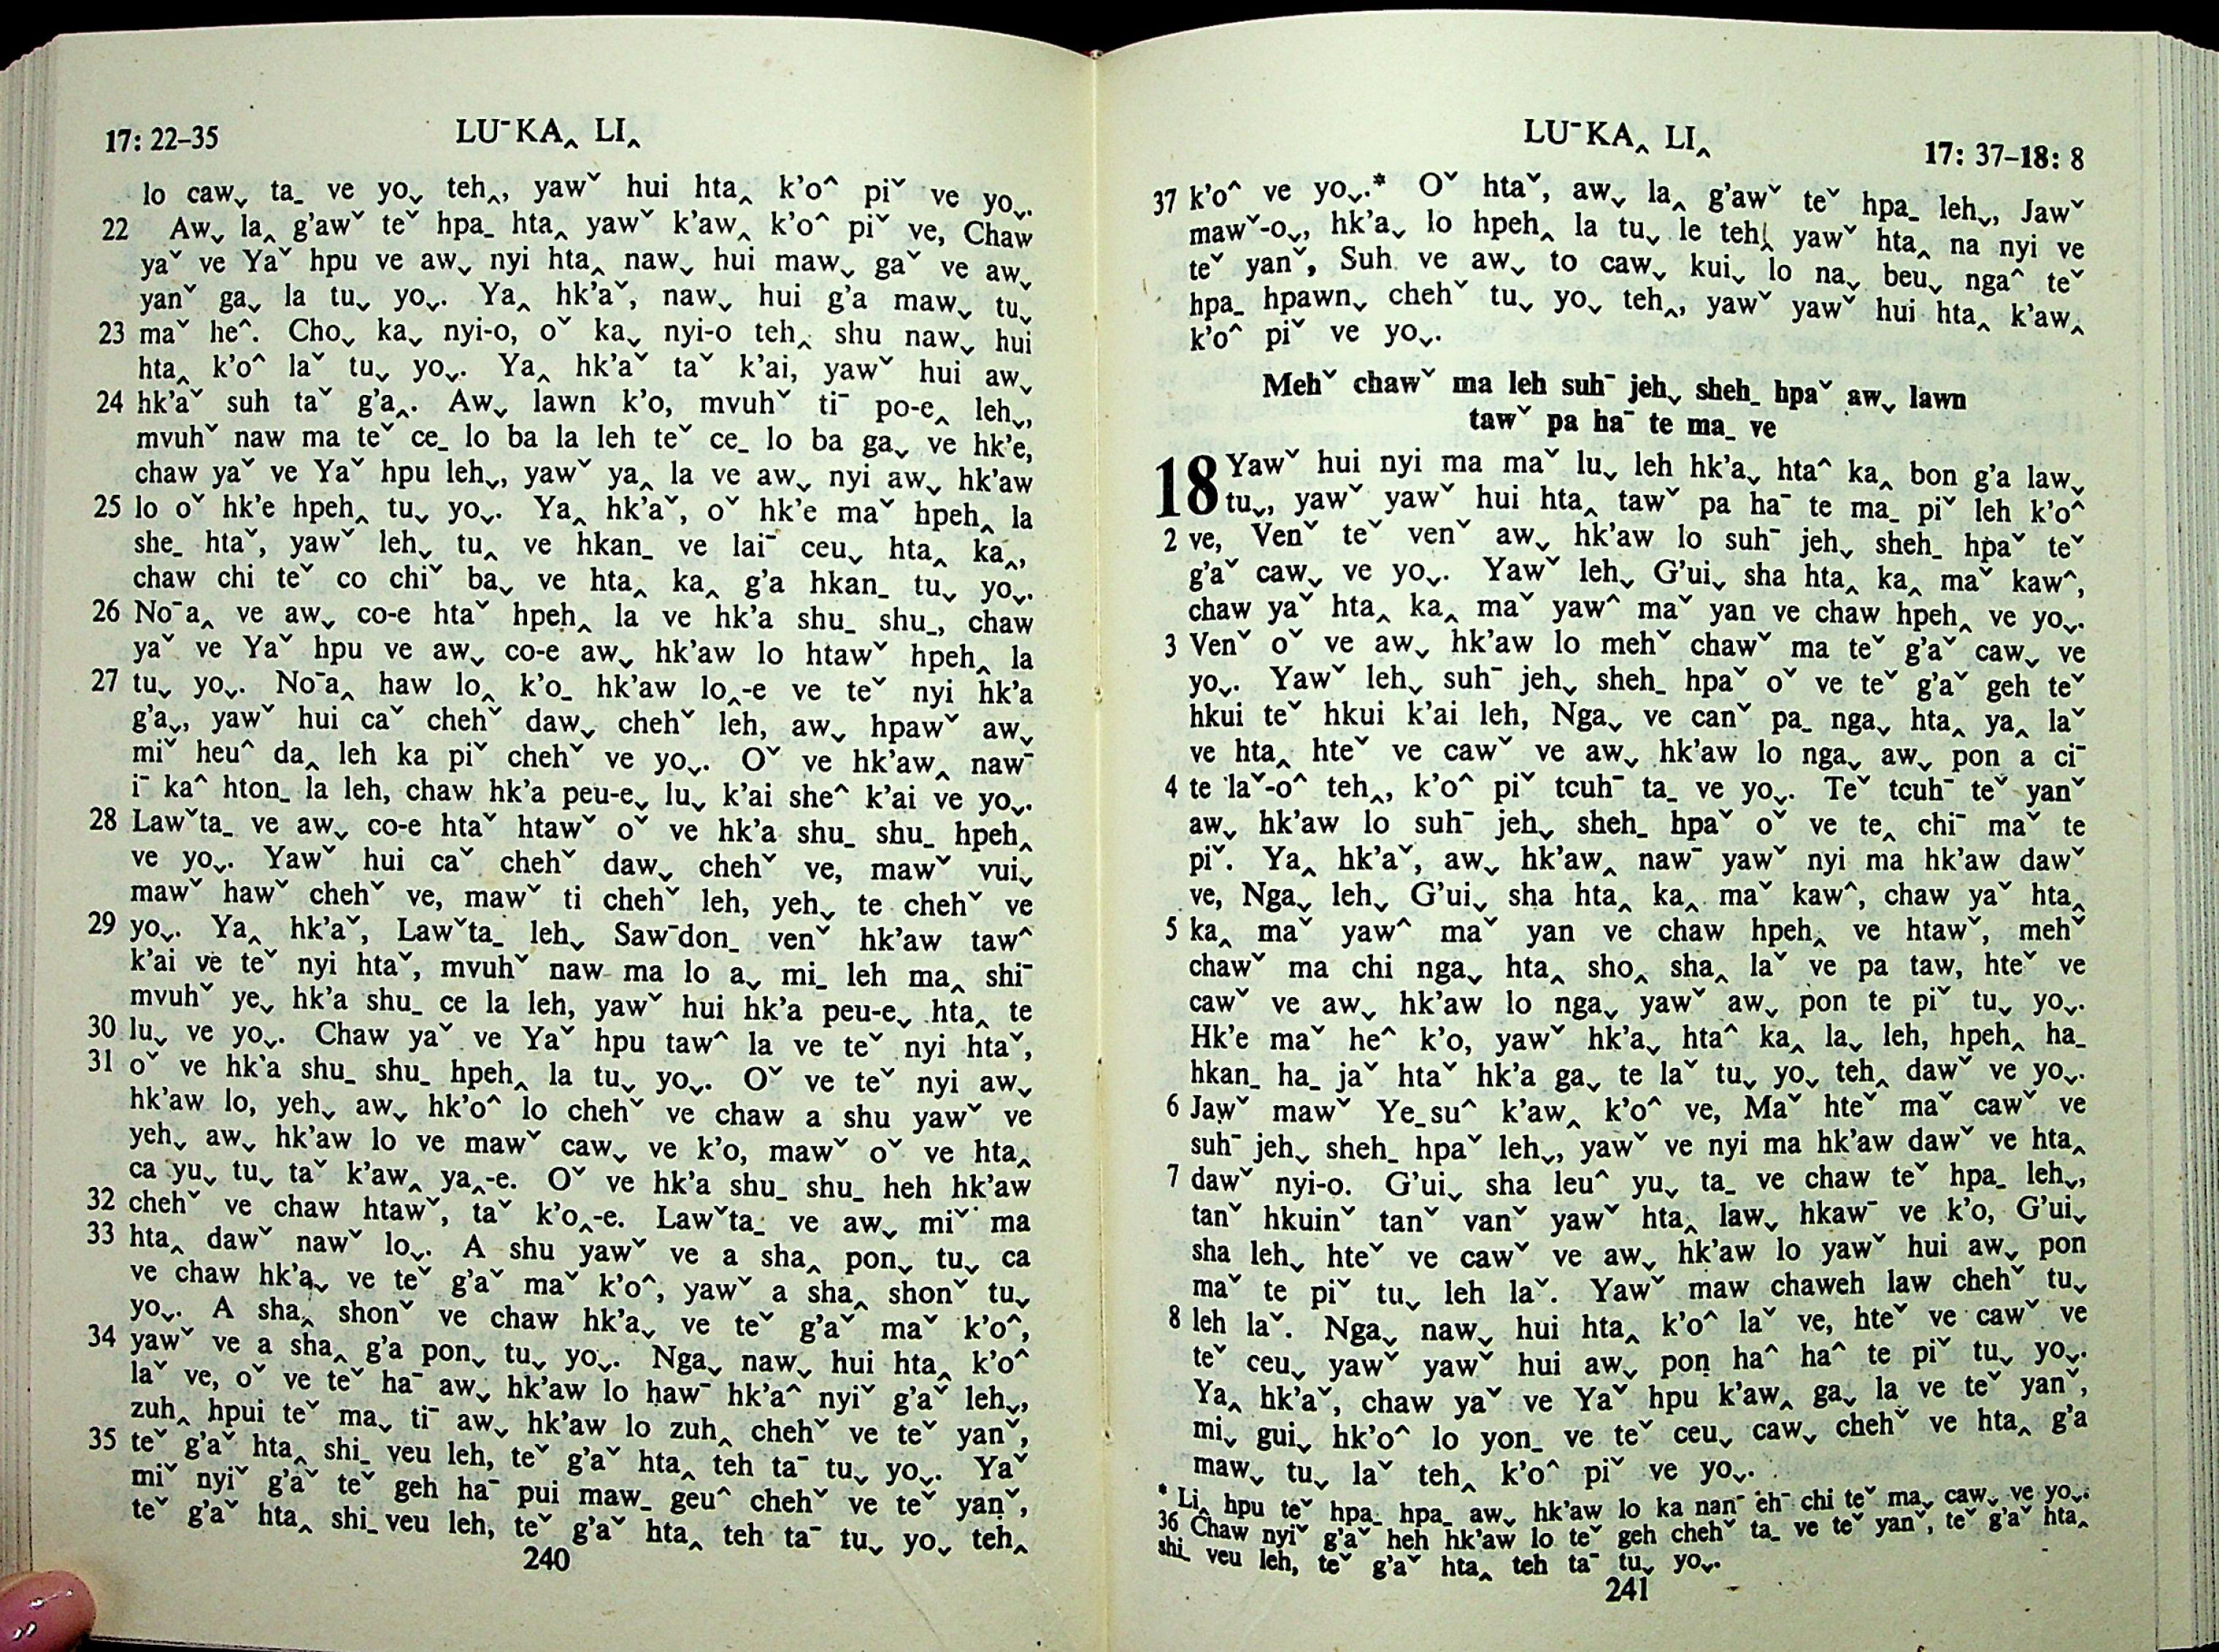 17: 22–35
LUˉKA‸ LI‸
lo caw˯ ta_ ve yo˯ teh‸, yawˇ hui hta‸ k'o^ piˇ ve yo˯.
22 Aw˯ la‸ g'awˇ teˇ hpa_ hta‸ yawˇ k'aw‸ k'o^ piˇ ve, Chaw
yaˇ ve Yaˇ hpu ve aw˯ nyi hta‸ naw˯ hui maw˯ gaˇ ve aw˯
yanˇ ga˯ la tu˯ yo˯. Ya‸ hk'aˇ, naw˯ hui g'a maw˯ tu˯
23 maˇ he^. Cho˯ ka˯ nyi-o, oˇ ka˯ nyi-o teh‸ shu naw˯ hui
hta‸ k'o^ laˇ tu˯ yo˯. Ya‸ hk'aˇ taˇ k'ai, yawˇ hui aw˯
24 hk'aˇ suh taˇ g'a‸. Aw˯ lawn k'o, mvuhˇ tiˉ po-e‸ leh˯,
mvuhˇ naw ma teˇ ce_ lo ba la leh teˇ ce_ lo ba ga˯ ve hk'e,
chaw yaˇ ve Yaˇ hpu leh˯, yawˇ ya‸ la ve aw˯ nyi aw˯ hk'aw
25 lo oˇ hk'e hpeh‸ tu˯ yo˯. Ya‸ hk'aˇ, oˇ hk'e maˇ hpeh‸ la
she_ htaˇ, yawˇ leh˯ tu‸ ve hkan_ ve laiˉ ceu˯ hta‸ ka‸,
chaw chi teˇ co chiˇ ba˯ ve hta‸ ka‸ g'a hkan_ tu˯ yo˯.
26 Noˉa‸ ve aw˯ co-e htaˇ hpeh‸ la ve hk'a shu_ shu_, chaw
yaˇ ve Yaˇ hpu ve aw˯ co-e aw˯ hk'aw lo htawˇ hpeh‸ la
27 tu˯ yo˯. Noˉa‸ haw lo‸ k'o_ hk'aw lo‸-e ve teˇ nyi hk'a
g'a˯, yawˇ hui caˇ chehˇ daw˯ chehˇ leh, aw˯ hpawˇ aw˯
miˇ heu^ da‸ leh ka piˇ chehˇ ve yo˯. Oˇ ve hk'aw‸ nawˉ
iˉ ka^ hton_ la leh, chaw hk'a peu-e˯ lu˯ k'ai she^ k'ai ve yo˯.
28 Lawˇta_ ve aw˯ co-e htaˇ htawˇ oˇ ve hk'a shu_ shu_ hpeh‸
ve yo˯. Yawˇ hui caˇ chehˇ daw˯ chehˇ ve, mawˇ vui˯
mawˇ hawˇ chehˇ ve, mawˇ ti chehˇ leh, yeh˯ te chehˇ ve
29 yo˯. Ya‸ hk'aˇ, Lawˇta_ leh˯ Sawˉdon_ venˇ hk'aw taw^
k'ai ve teˇ nyi htaˇ, mvuhˇ naw ma lo a˯ mi_ leh ma‸ shiˉ
mvuhˇ ye˯ hk'a shu_ ce la leh, yawˇ hui hk'a peu-e˯ hta‸ te
30 lu˯ ve yo˯. Chaw yaˇ ve Yaˇ hpu taw^ la ve teˇ nyi htaˇ,
31 oˇ ve hk'a shu_ shu_ hpeh‸ la tu˯ yo˯. Oˇ ve teˇ nyi aw˯
hk'aw lo, yeh˯ aw˯ hk'o^ lo chehˇ ve chaw a shu yawˇ ve
yeh˯ aw˯ hk'aw lo ve mawˇ caw˯ ve k'o, mawˇ oˇ ve hta‸
ca yu˯ tu˯ taˇ k'aw‸ ya‸-e. Oˇ ve hk'a shu_ shu_ heh hk'aw
32 chehˇ ve chaw htawˇ, taˇ k'o‸-e. Lawˇta_ ve aw˯ miˇ ma
33 hta‸ dawˇ nawˇ lo˯. A shu yawˇ ve a sha‸ pon˯ tu˯ ca
ve chaw hk'a˯ ve teˇ g'aˇ maˇ k'o^, yawˇ a sha‸ shonˇ tu˯
yo˯. A sha‸ shonˇ ve chaw hk'a˯ ve teˇ g'aˇ maˇ k'o^,
34 yawˇ ve a sha‸ g'a pon˯ tu˯ yo˯. Nga˯ naw˯ hui hta‸ k'o^
laˇ ve, oˇ ve teˇ haˉ aw˯ hk'aw lo hawˉ hk'a^ nyiˇ g'aˇ leh˯,
zuh‸ hpui teˇ ma˯ tiˉ aw˯ hk'aw lo zuh‸ chehˇ ve teˇ yanˇ,
35 teˇ g'aˇ hta‸ shi_ veu leh, teˇ g'aˇ hta‸ teh taˉ tu˯ yo˯. Yaˇ
miˇ nyiˇ g'aˇ teˇ geh haˉ pui maw_ geu^ chehˇ ve teˇ yanˇ,
teˇ g'aˇ hta‸ shi_ veu leh, teˇ g'aˇ hta‸ teh taˉ tu˯ yo˯ teh‸
240
LUˉKA‸ LI‸
17: 37–18: 8
37 k'o^ ve yo˯.* Oˇ htaˇ, aw˯ la‸ g'awˇ teˇ hpa_ leh˯, Jawˇ
mawˇ-o˯, hk'a˯ lo hpeh‸ la tu˯ le teh‸ yawˇ hta‸ na nyi ve
teˇ yanˇ, Suh ve aw˯ to caw˯ kui˯ lo na˯ beu˯ nga^ teˇ
hpa_ hpawn˯ chehˇ tu˯ yo˯ teh‸, yawˇ yawˇ hui hta‸ k'aw‸
k'o^ piˇ ve yo˯.
Mehˇ chawˇ ma leh suhˉ jeh˯ sheh_ hpaˇ aw˯ lawn
tawˇ pa haˉ te ma_ ve
18 Yawˇ hui nyi ma maˇ lu˯ leh hk'a˯ hta^ ka‸ bon g'a law˯
tu˯, yawˇ yawˇ hui hta‸ tawˇ pa haˉ te ma_ piˇ leh k'o^
2 ve, Venˇ teˇ venˇ aw˯ hk'aw lo suhˉ jeh˯ sheh_ hpaˇ teˇ
g'aˇ caw˯ ve yo˯. Yawˇ leh˯ G'ui˯ sha hta‸ ka‸ maˇ kaw^,
chaw yaˇ hta‸ ka‸ maˇ yaw^ maˇ yan ve chaw hpeh‸ ve yo˯.
3 Venˇ oˇ ve aw˯ hk'aw lo mehˇ chawˇ ma teˇ g'aˇ caw˯ ve
yo˯. Yawˇ leh˯ suhˉ jeh˯ sheh_ hpaˇ oˇ ve teˇ g'aˇ geh teˇ
hkui teˇ hkui k'ai leh, Nga˯ ve canˇ pa_ nga˯ hta‸ ya‸ laˇ
ve hta‸ hteˇ ve cawˇ ve aw˯ hk'aw lo nga˯ aw˯ pon a ciˉ
4 te laˇ-o^ teh‸, k'o^ piˇ tcuhˉ ta_ ve yo˯. Teˇ tcuhˉ teˇ yanˇ
aw˯ hk'aw lo suhˉ jeh˯ sheh_ hpaˇ oˇ ve te‸ chiˉ maˇ te
piˇ. Ya‸ hk'aˇ, aw˯ hk'aw‸ nawˉ yawˇ nyi ma hk'aw dawˇ
ve, Nga˯ leh˯ G'ui˯ sha hta‸ ka‸ maˇ kaw^, chaw yaˇ hta‸
5 ka‸ maˇ yaw^ maˇ yan ve chaw hpeh‸ ve htawˇ, mehˇ
chawˇ ma chi nga˯ hta‸ sho‸ sha‸ laˇ ve pa taw, hteˇ ve
cawˇ ve aw˯ hk'aw lo nga˯ yawˇ aw˯ pon te piˇ tu˯ yo˯.
Hk'e maˇ he^ k'o, yawˇ hk'a˯ hta^ ka‸ la˯ leh, hpeh‸ ha_
hkan_ ha_ jaˇ htaˇ hk'a ga˯ te laˇ tu˯ yo˯ teh‸ dawˇ ve yo˯.
6 Jawˇ mawˇ Ye_su^ k'aw‸ k'o^ ve, Maˇ hteˇ maˇ cawˇ ve
suhˉ jeh˯ sheh_ hpaˇ leh˯, yawˇ ve nyi ma hk'aw dawˇ ve hta‸
7 dawˇ nyi-o. G'ui˯ sha leu^ yu˯ ta_ ve chaw teˇ hpa_ leh˯,
tanˇ hkuinˇ tanˇ vanˇ yawˇ hta‸ law˯ hkawˉ ve k'o, G'ui˯
sha leh˯ hteˇ ve cawˇ ve aw˯ hk'aw lo yawˇ hui aw˯ pon
maˇ te piˇ tu˯ leh laˇ. Yawˇ maw chaweh law chehˇ tu˯
8 leh laˇ. Nga˯ naw˯ hui hta‸ k'o^ laˇ ve, hteˇ ve cawˇ ve
teˇ ceu˯ yawˇ yawˇ hui aw˯ pon ha^ ha^ te piˇ tu˯ yo˯.
Ya‸ hk'aˇ, chaw yaˇ ve Yaˇ hpu k'aw‸ ga˯ la ve teˇ yanˇ,
mi˯ gui˯ hk'o^ lo yon_ ve teˇ ceu˯ caw˯ chehˇ ve hta‸ g'a
maw˯ tu˯ laˇ teh‸ k'o^ piˇ ve yo˯.
* Li‸ hpu teˇ hpa_ hpa_ aw˯ hk'aw lo ka nanˉ ehˉ chi teˇ ma˯ caw˯ ve yo˯:
36 Chaw nyiˇ g'aˇ heh hk'aw lo teˇ geh chehˇ ta_ ve teˇ yanˇ, teˇ g'aˇ hta‸
shi_ veu leh, teˇ g'aˇ hta‸ teh taˉ tu˯ yo˯.
241